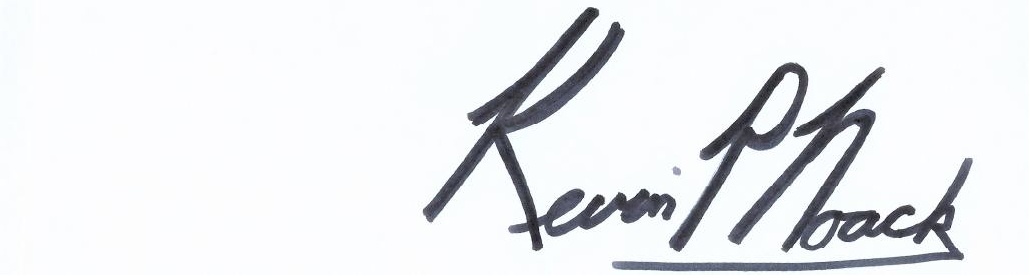 Kevin P Noack